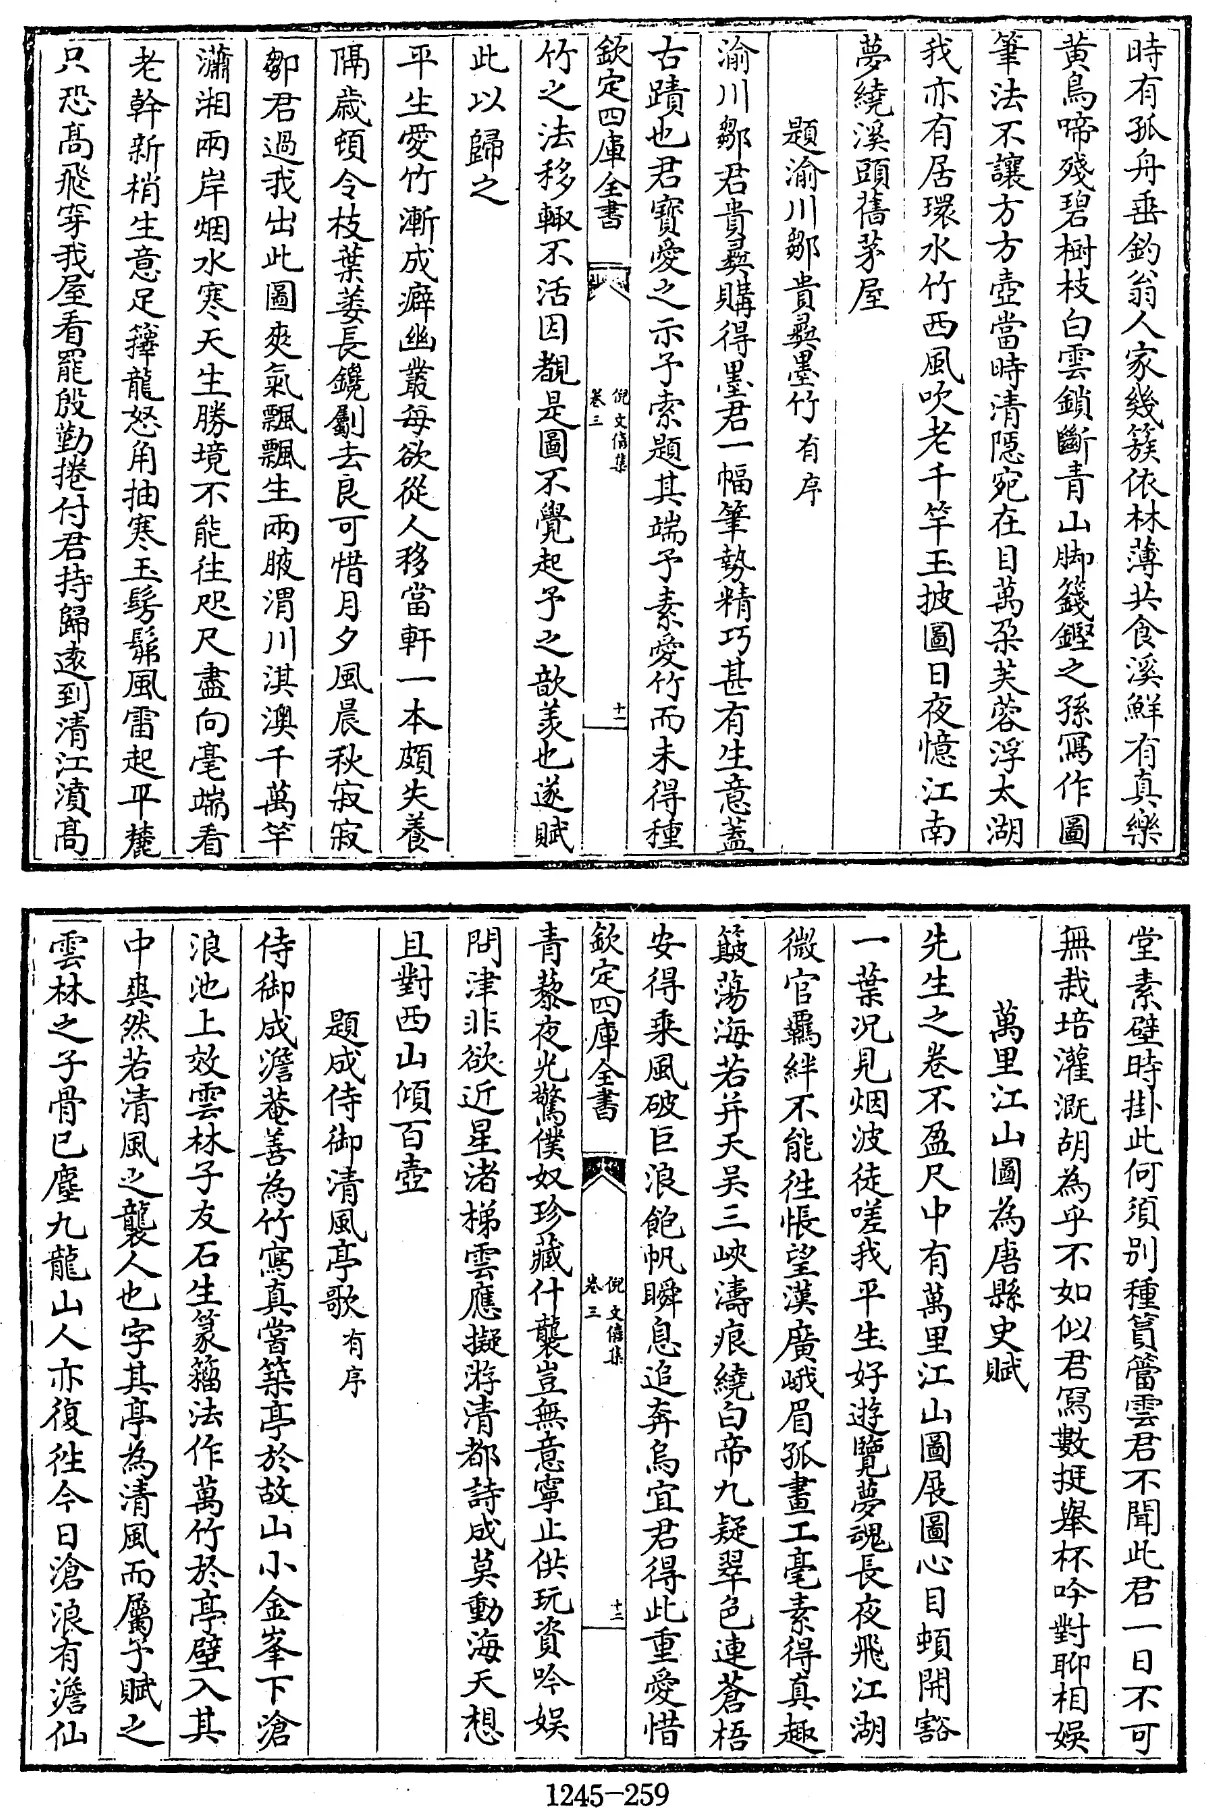 時有孤舟垂釣翁人家幾簇依林薄共食溪鮮有真樂
黄鳥啼殘碧樹枝白雲鎖斷青山脚籛鏗之孫寫作圖
筆法不讓方方壺當時清隱宛在目萬朶芙蓉浮太湖
我亦有居環水竹西風吹老千竿玉披圖日夜憶江南
夢繞溪頭舊茅屋
題渝川鄒貴彞墨竹有序
渝川鄒君貴彞購得墨君一幅筆勢精巧甚有生意蓋
古蹟也君寳愛之示予索題其端予素愛竹而未得種
欽定四庫全書
倪文僖集
卷三
十一
竹之法移輙不活因覩是圖不覺起予之歆羡也遂賦
此以歸之
平生愛竹漸成癖幽叢每欲從人移當軒一本頗失養
隔歲頓令枝葉萎長鑱劚去良可惜月夕風晨秋寂寂
鄒君過我出此圖爽氣飄飄生兩腋渭川淇澳千萬竿
瀟湘兩岸烟水寒天生勝境不能往咫尺盡向毫端看
老幹新梢生意足籜龍怒角抽寒玉髣髴風雷起平麓
只恐髙飛穿我屋看罷殷勤捲付君持歸逺到清江濆髙
堂素壁時掛此何須別種篔簹雲君不聞此君一日不可
無栽培灌溉胡為乎不如似君寫數挺舉杯吟對聊相娛
萬里江山圖為唐縣史賦
先生之卷不盈尺中有萬里江山圖展圖心目頓開豁
一葉況見烟波徒嗟我平生好遊覽夢魂長夜飛江湖
微官覊絆不能往悵望漢廣峨眉孤畫工毫素得真趣
簸蕩海若并天吴三峽濤痕繞白帝九疑翠色連蒼梧
安得乘風破巨浪飽帆瞬息追奔烏宜君得此重愛惜
欽定四庫全書
倪文僖集
卷三
十二
青藜夜光驚僕奴珍藏什襲豈無意寧止供玩資吟娱
問津非欲近星渚梯雲應擬游清都詩成莫動海天想
且對西山傾百壺
題成侍御清風亭歌有序
侍御成澹菴善為竹寫真嘗築亭於故山小金峯下滄
浪池上效雲林子友石生篆籕法作萬竹於亭壁入其
中爽然若清風之襲人也字其亭為清風而屬予賦之
雲林之子骨已塵九龍山人亦復徃今日滄浪有澹仙
1245-259